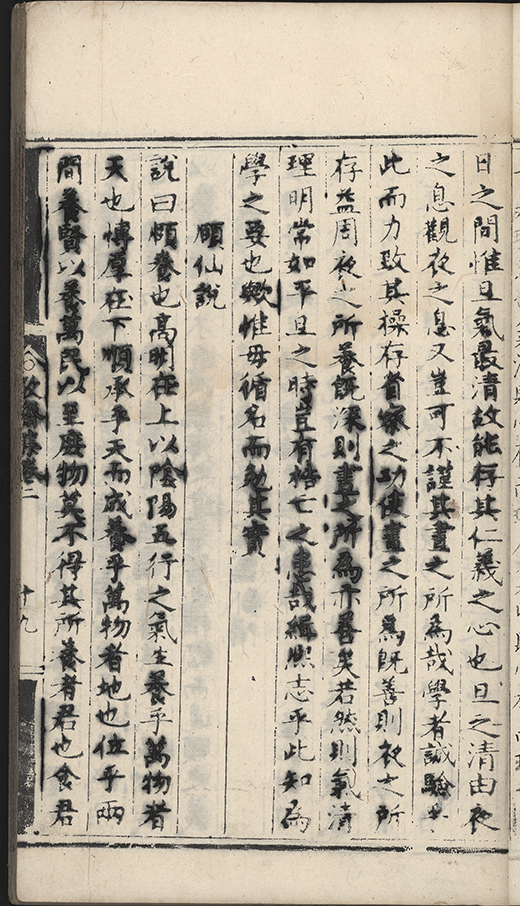 日之間惟旦氣最清故能存其仁義之心也旦之清由夜
之息觀夜之息又豈可不謹其晝之所為哉學者誠驗於
此而力致其操存省察之功使晝之所為既善則夜之所
存益周夜之所養既深則晝之所為亦善矣若然則氣清
理明常如平旦之時豈有梏亡之患哉緝熙志乎此知為
學之要也歟惟毋循名而勉其實
頤仙說
說曰頤養也高明在上以陰陽五行之氣生養乎萬物者
天也博厚在下順承乎天而成養乎萬物者地也位乎兩
間養賢以養萬民以至庶物莫不得其所養者君也食君
齋集卷二
十九